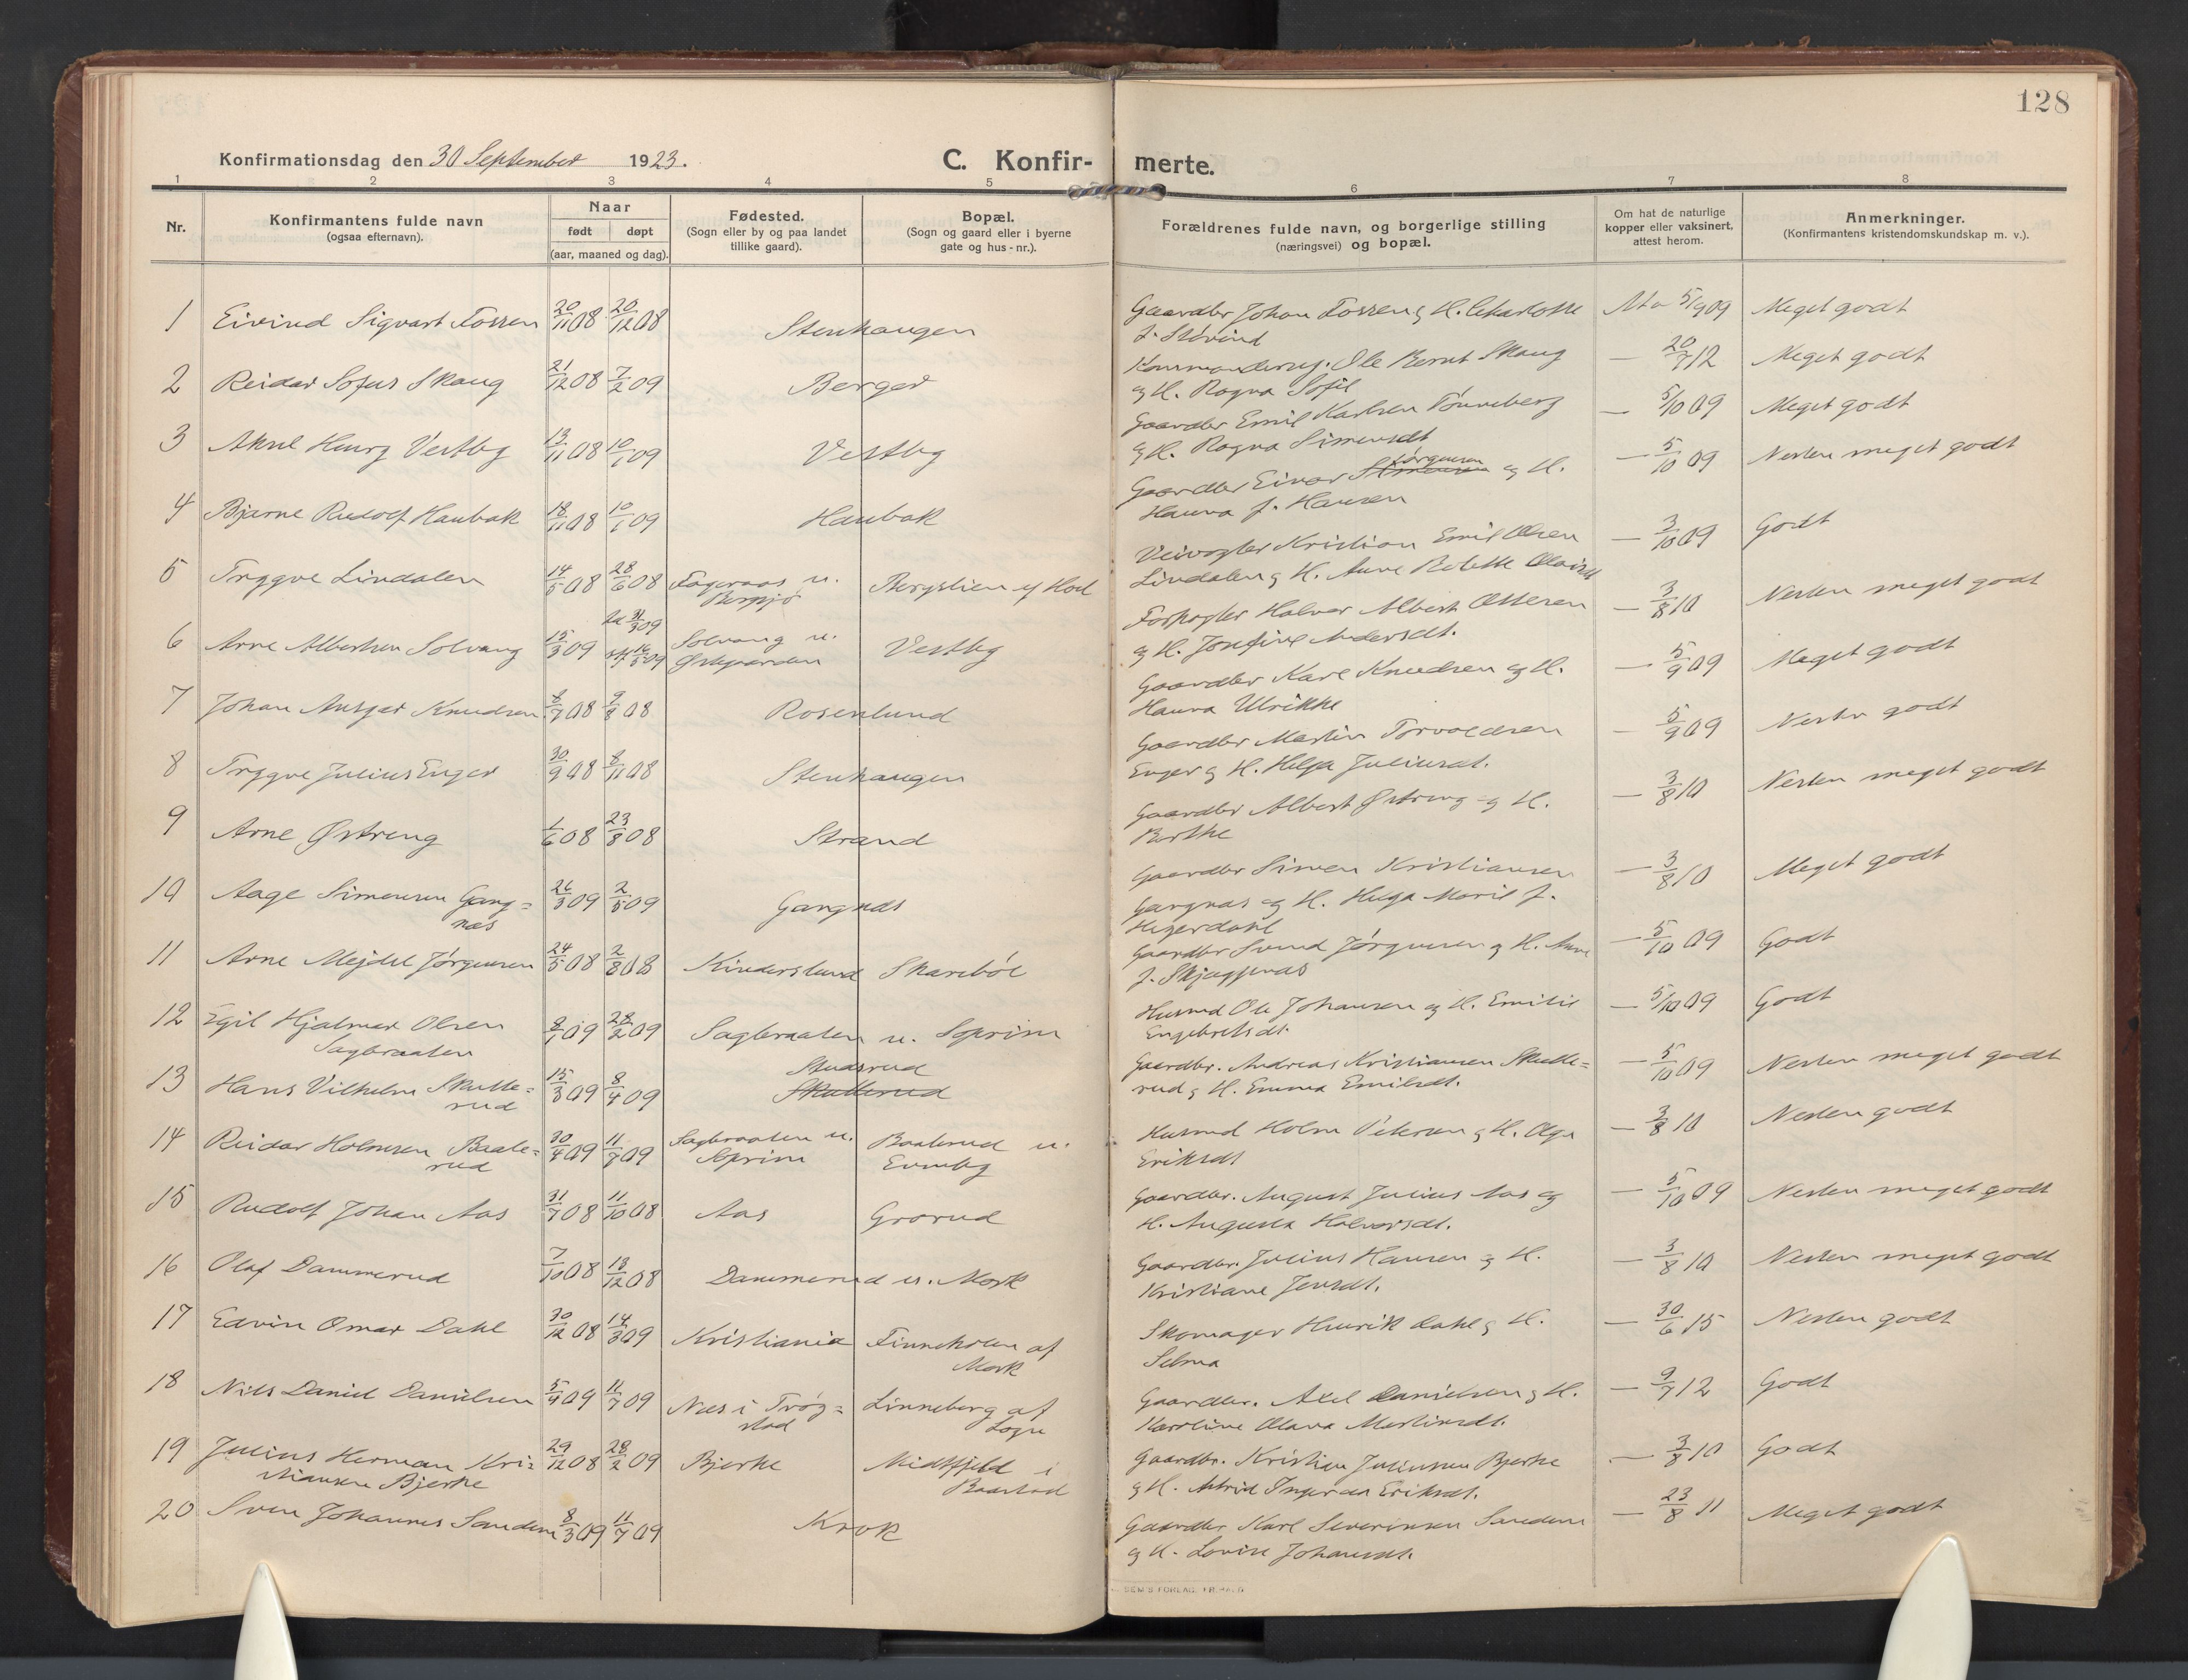 128
Konfirmationsdag den 30 September 1923.
C. Konfir-merte.
1 2 3 4 5 6 7 8
Nr.
Konfirmantens fulde navn
(ogsaa efternavn).
Naar
født døpt
(aar, maaned og dag).
Fødested.
(Sogn eller by og paa landet
tillike gaard).
Bopæl.
(Sogn og gaard eller i byerne
gate og hus-nr.).
Forældrenes fulde navn, og borgerlige stilling
(næringsvei) og bopæl.
Om hat de naturlige
kopper eller vaksinert,
attest herom.
Anmerkninger.
(Konfirmantens kristendomskundskap m. v.).
1 Eivind Sigvart Fossen 20/11 08 20/12 08 Stenhaugen Gaardbr Johan Fossen & H. Charlotte 5/9 09 Meget godt
2 Reidar Sofus Skaug 21/12 08 7/2 09 Berger Ole Bernt Skaug — 20/7 12 Meget godt
og H. Ragna Sofie
3 Aksel Henry Vestby 13/11 08 10/1 09 Vestby Gaardbr Emil Karlsen Tønneberg — 5/10 09 Meget godt
og H. Ragna Simensdt
4 Bjarne Rudolf Haubak 18/11 08 10/1 09 Haubak Gaardbr Einar Simensen Jørgensen og H. — 5/10 09 Nesten meget godt
Hanna f. Hansen
5 Tryggve Lindalen 14/5 08 28/6 08 Fageraas u. Bergsjø Bergslien af Hol Veivogter Kristian Emil Olsen — 3/10 09 Godt
Lindalen & H. Anne Bolette
6 Arne Albertsen Solvang 15/3 09 31/3 09 16/5 09 Solvang u. Østegaarden Vestby Halvor Albert Ottesen — 3/8 10 Nesten meget godt
og H. Josefine Andersdt.
7 Johan Ansgar Knudsen 8/7 08 9/8 08 Rosenlund Gaardbr Karl Knudsen og H. — 5/9 09 Meget godt
Hanna Ulrikke
8 Tryggve Julius Enger 30/9 08 8/11 08 Stenhaugen Gaardbr Martin Torvaldsen — 5/9 09 Nesten godt
Enger & H. Helga Juliusdt.
9 Arne Østreng 1/6 08 23/8 08 Strand Gaardbr Albert Østreng og H. — 3/8 10 Nesten meget godt
Berthe
10 Aage Simensen Gang=næs 26/3 09 2/5 09 Gangnæs Gaardbr Simen Kristiansen — 3/8 10 Meget godt
Gangnæs og H. Helga Marie f.
Hegerdahl
11 Arne Mejdel Jørgensen 24/5 08 2/8 08 Kinderslund Skarebøl Gaardbr Svend Jørgensen & H. Anna — 5/10 09 Godt
12 Egil Hjalmar Olsen 8/1 09 28/2 09 Sagbraaten u. Soprim Husmd Ole Johansen og H. Emilie — 5/10 09 Godt
Sagbraaten Engebretsdt.
13 Hans Vilhelm Skulle=rud 15/3 09 8/4 09 Studsrud Skullerud Gaardbr. Andreas Kristiansen Skulle= — 5/10 09 Nesten meget godt
rud & H. Emma Emilsdt.
14 Reidar Holmsen Baale=rud 30/4 09 11/7 09 Sagbraaten u. Soprim Baalerud u. Evenby Husmd Holm Petersen & H. Olga — 3/8 10 Nesten godt
Eriksdt
15 Rudolf Johan Aas 31/7 08 11/10 08 Aas Grorud Gaardbr. August Julius Aas og — 5/10 09 Nesten meget godt
H. Augusta Halvorsdt.
16 Olaf Dammerud 7/10 08 13/12 08 Dammerud u. Mork Gaardbr. Julius Hansen og H. — 3/8 10 Nesten meget godt
Kristiane Jensdt.
17 Edvin Omar Dahl 30/12 08 14/3 09 Kristiania Finneholen af Mork Skomager Henrik Dahl & H. — 30/6 15 Nesten godt
Selma
18 Nils Daniel Danielsen 5/4 09 11/7 09 Næs i Trøg=stad Linneberg af Sogn Gaardbr. Axel Danielsen & H. — 9/7 12 Godt
Karoline Olava Martinsdt.
19 Julius Herman Kri=stiansen Bjerke 29/12 08 28/2 09 Bjerke Midtfjeld i Baastad Gaardbr. Kristian Juliussen Bjerke — 3/8 10 Godt
& H. Astrid Ingerda Eriksdt.
20 Sven Johannes Sandem 8/3 09 11/7 09 Krok Gaardbr Karl Severinsen Sandem — 23/8 11 Meget godt
og H. Lovise Johansdt.
SEM'S FORLAG, FR.HALD